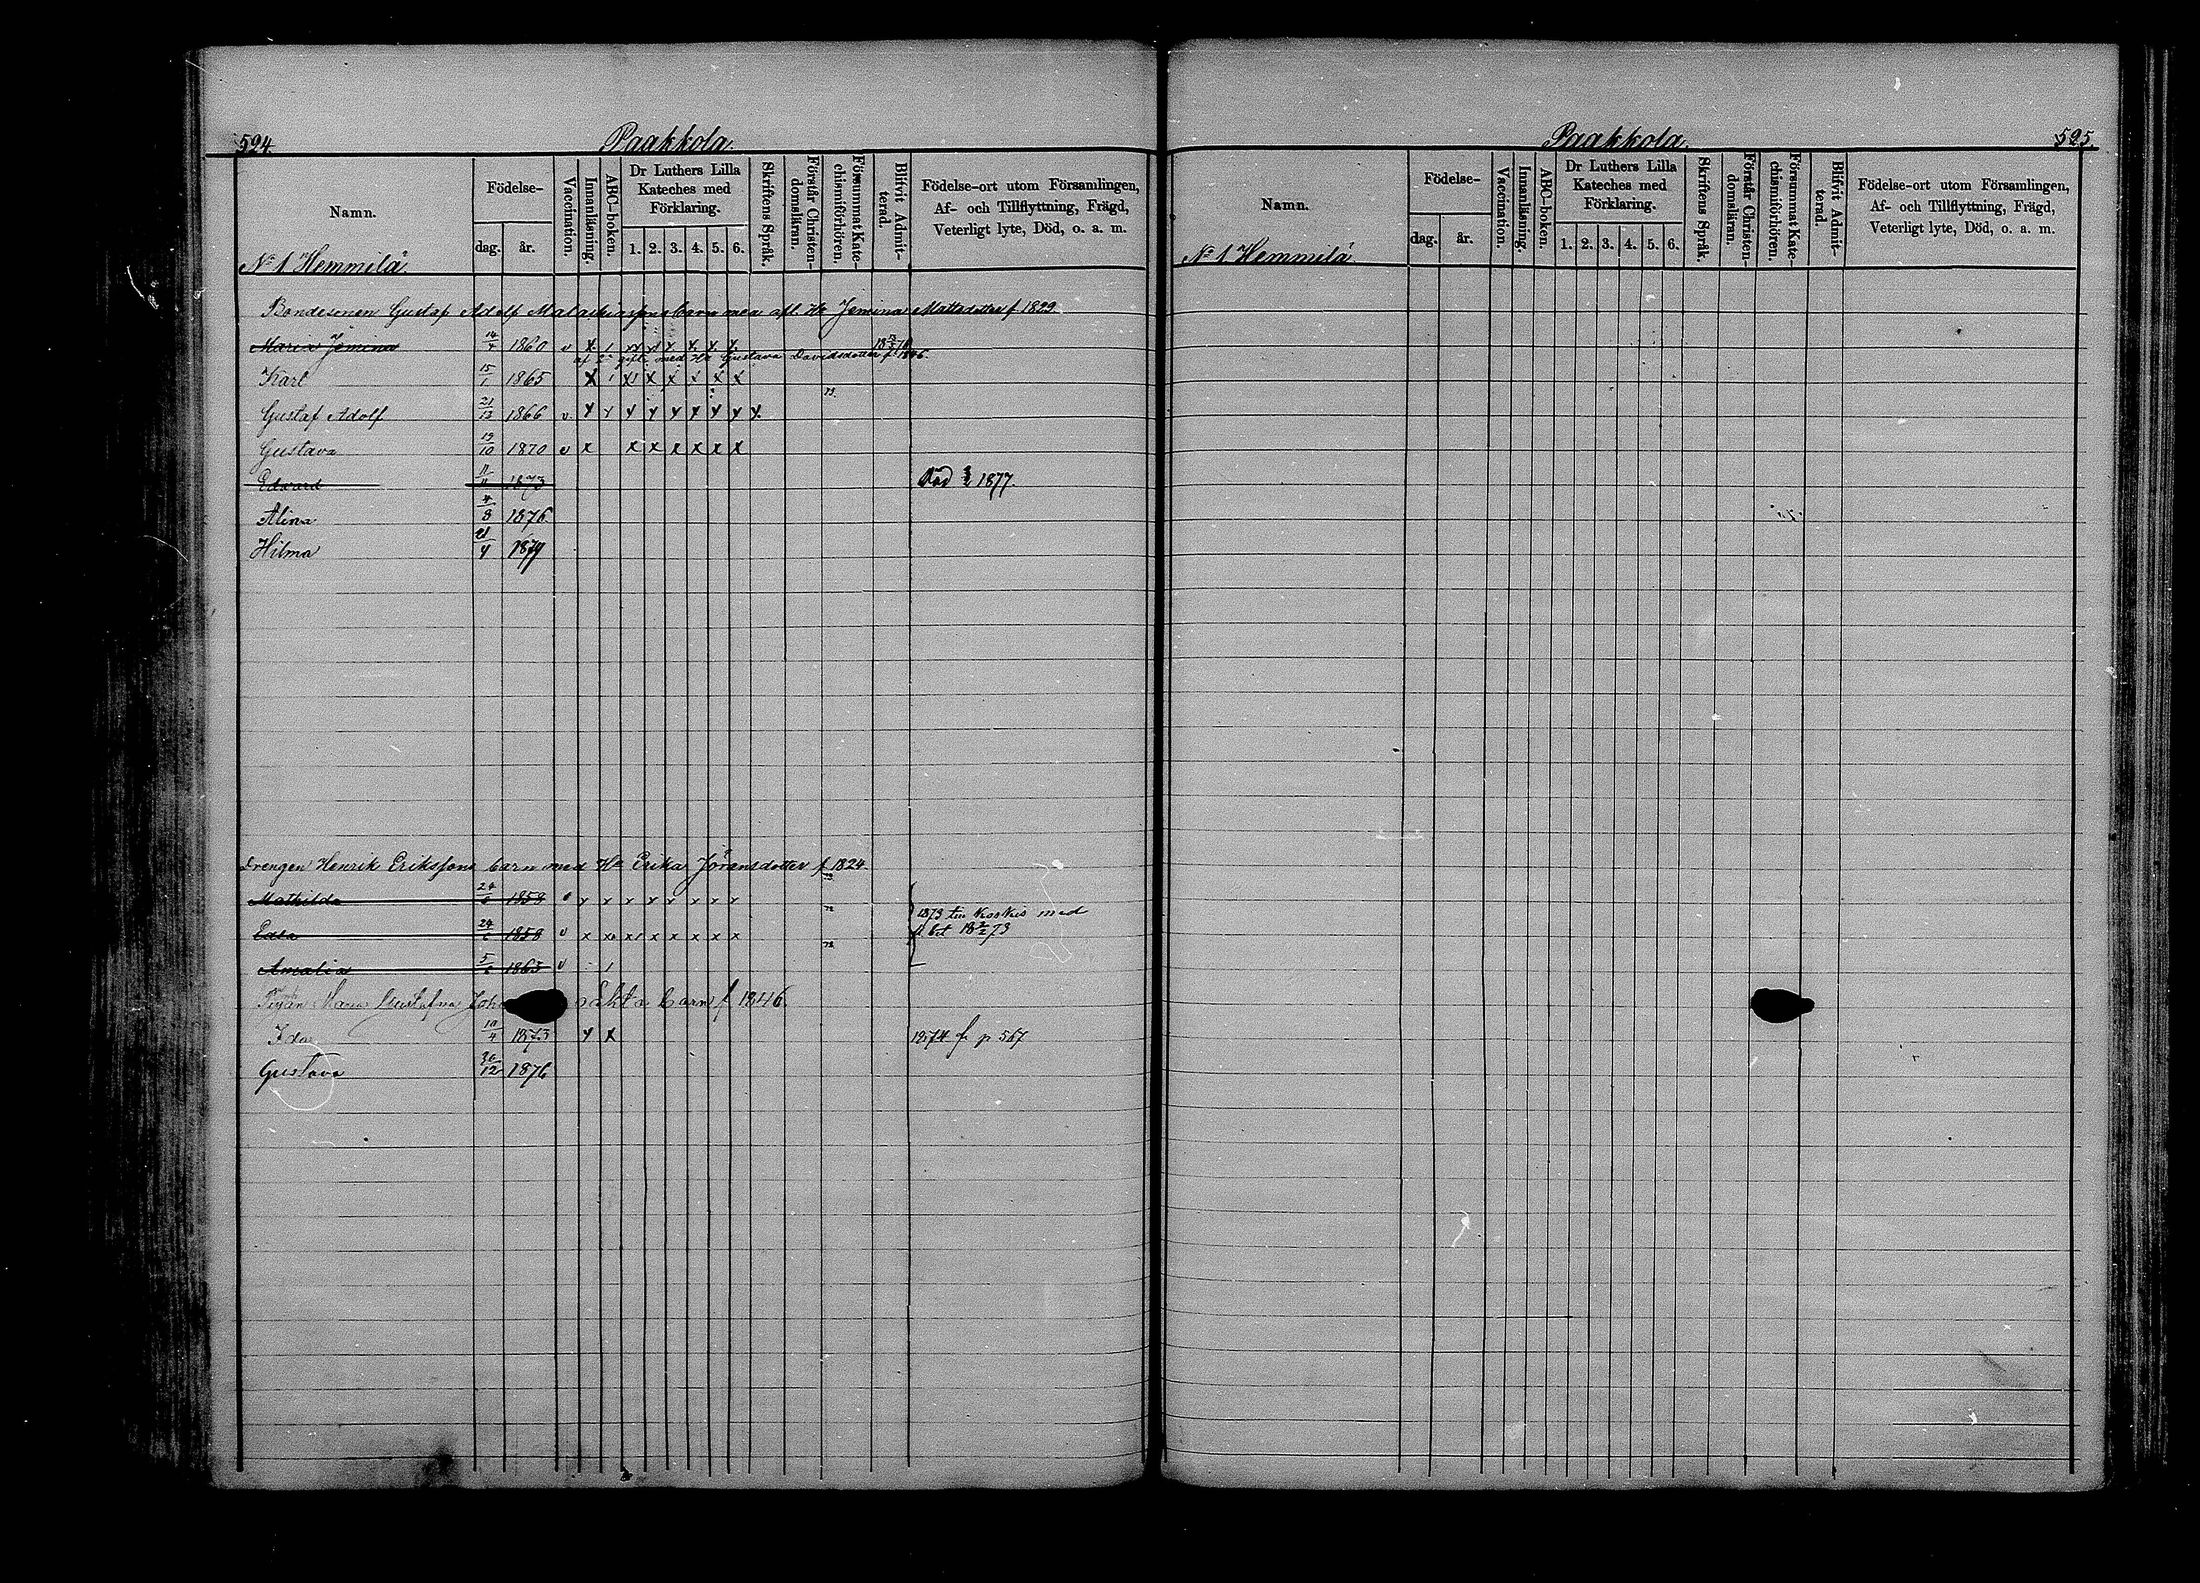 524. Paakkola.
Namn. Födelse- Vaccination. Innanläsning. ABC-boken. Dr Luthers Lilla Kateches med Förklaring. Skriftens Språk. Förstår Christendomsläran. Försummat Katechismiförhören. Blifvit Admitterad. Födelse-ort utom Församlingen, Af- och Tillflyttning, Frägd, Veterligt lyte, Död, o. a. m.
dag. år. 1. 2. 3. 4. 5. 6.
No 1 Hemmilä.
Bondesonen Gustaf Adolf Malakiassons barn med afl. Hu Jemina Mattsdotter f 1829.
Maria Jemina 1860 v x 1 x x x x x x
af 2a gifte med Hu Gustava Davidsdotter f. 1846.
Karl 15/1 1865 x 1 x x x x x x
Gustaf Adolf 21/12 1866 v. x x x x x x x x x
Gustava 19/10 1870 v x x x x x x x
Edvard 11/11 1873 Död 1877.
Alina 4/8 1876.
Hilma 21/4 1879
Drengen Henrik Erikssons barn med Hu Erika Jöransdotter f 1824.
Mathilda 24/6 1858 v x x x x x x x x
Edla 24/6 1858 v x x x x x x x x
1873 till Koskis med
bet 18 73
Amalia 1865 v 1
Pigan Maria Gustafva Joh oäkta barn f 1846.
Ida 10/4 1873 x x 1874 fr p 567
Gustava 30/12 1876
Paakkola. 525.
Namn. Födelse- Vaccination. Innanläsning. ABC-boken. Dr Luthers Lilla Kateches med Förklaring. Skriftens Språk. Förstår Christendomsläran. Försummat Katechismiförhören. Blifvit Admitterad. Födelse-ort utom Församlingen, Af- och Tillflyttning, Frägd, Veterligt lyte, Död, o. a. m.
dag. år. 1. 2. 3. 4. 5. 6.
No 1 Hemmilä